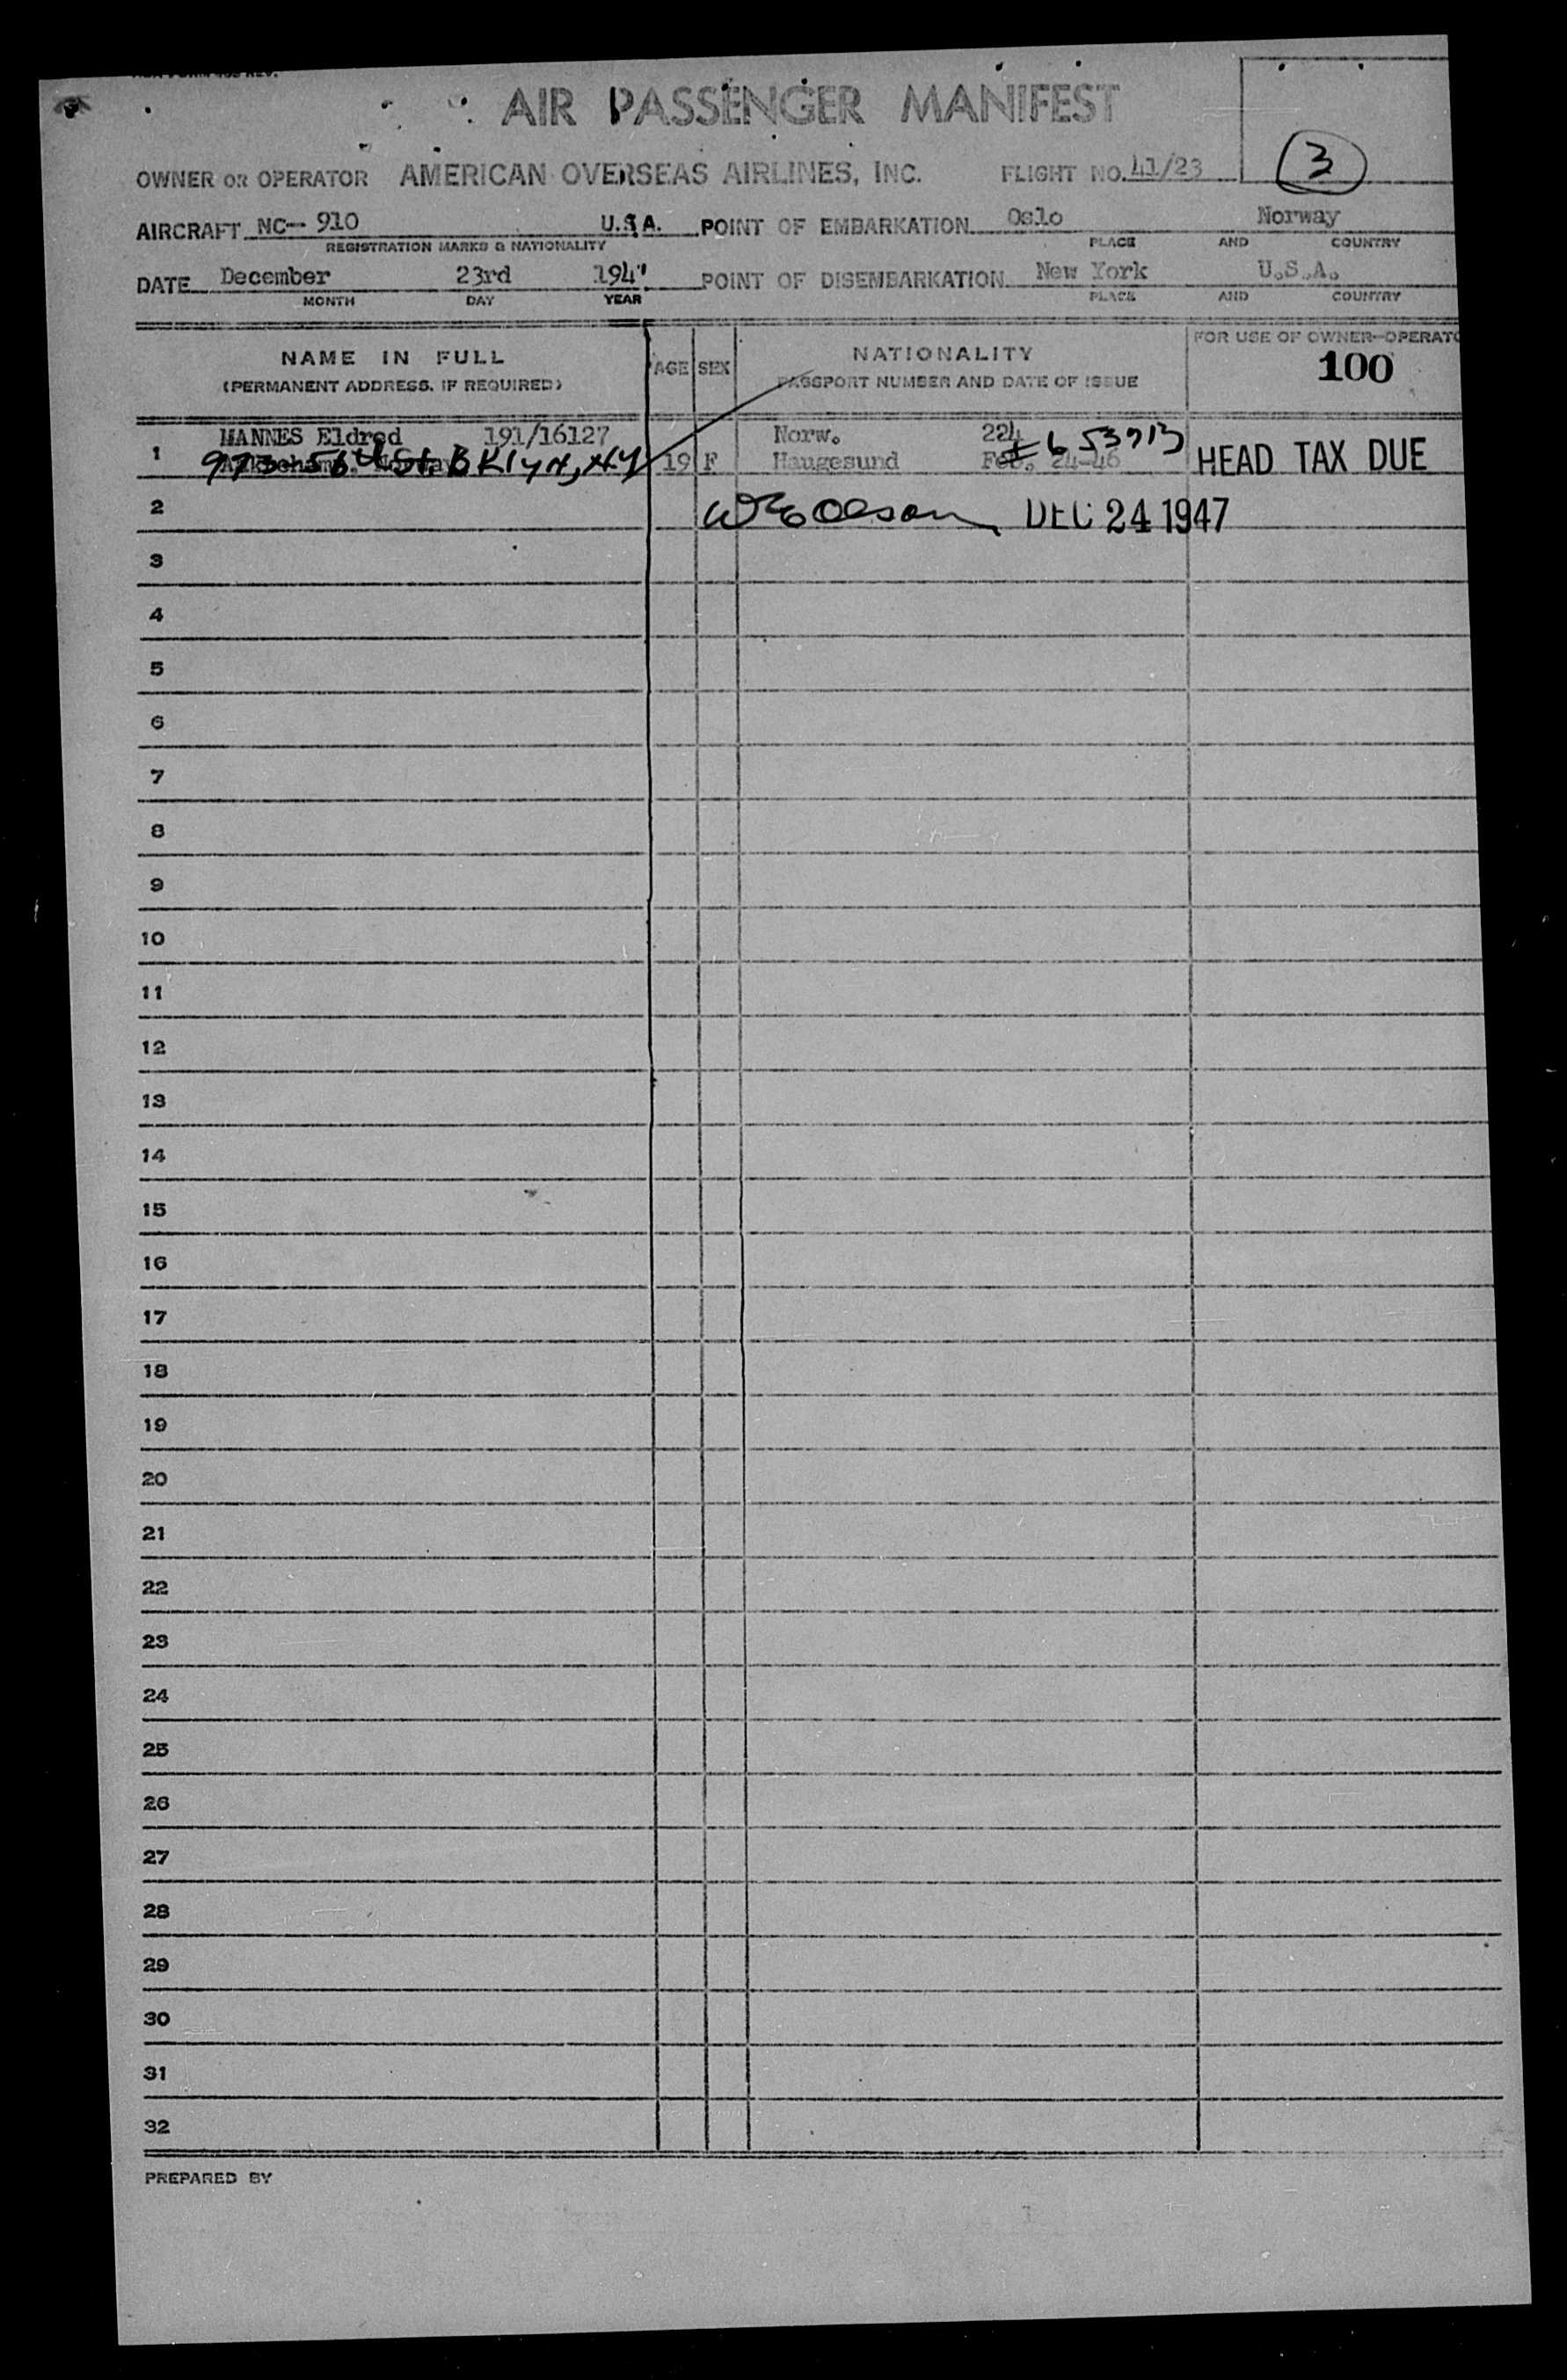 AIR PASSENGER MANIFEST
OWNER OR OPERATOR AMERICAN OVERSEAS AIRLINES, INC. FLIGHT NO. 41/23 3
AIRCRAFT NC-- 910 U.S.A. POINT OF EMBARKATION Oslo Norway
REGISTRATION MARKS & NATIONALITY PLACE AND COUNTRY
DATE December 23rd 1947 POINT OF DISEMBARKATION New York U.S.A.
MONTH DAY YEAR PLACE AND COUNTRY
NAME IN FULL AGE SEX NATIONALITY FOR USE OF OWNER-OPERATO
(PERMANENT ADDRESS, IF REQUIRED) PASSPORT NUMBER AND DATE OF ISSUE 100
MANNES Eldred 191/16127 Norw. 224
1 973 56th St. BKlyn, NY 19 F Haugesund Feb. 24-46 653713 HEAD TAX DUE
2 Olson DEC 24 1947
3
4
5
6
7
8
9
10
11
12
13
14
15
16
17
18
19
20
21
22
23
24
25
26
27
28
29
30
31
32
PREPARED BY